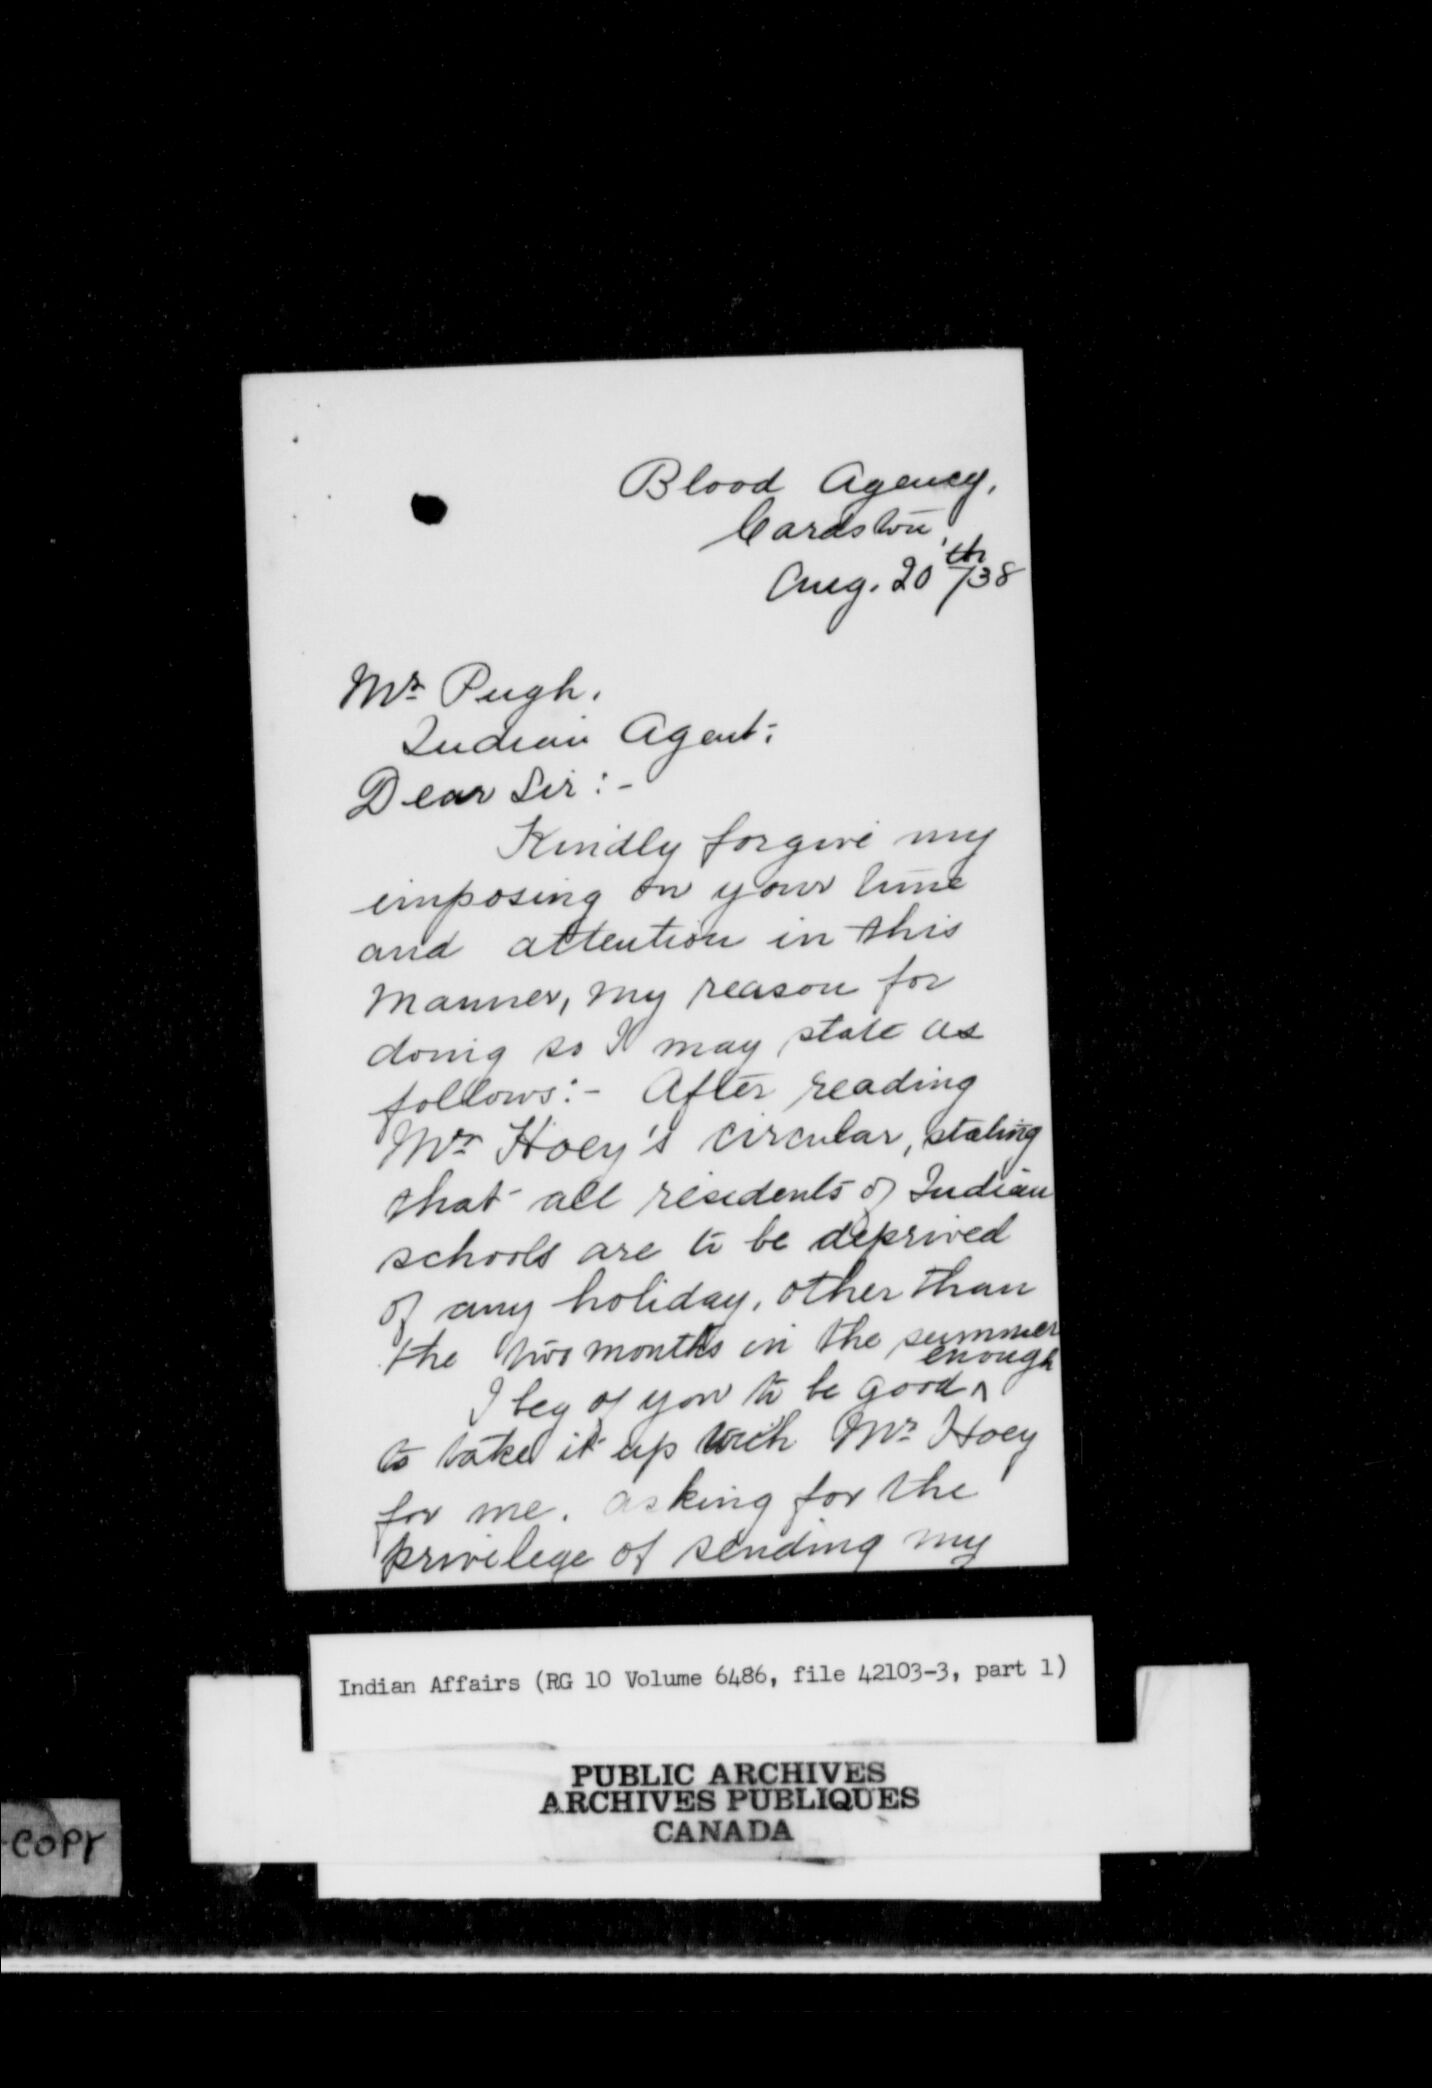 Blood Agency,
Cardston,
Aug. 20th/38
Mr Pugh.
Indian Agent:
Dear Sir:-
Kindly forgive my
imposing on your time
and attention in this
manner, my reason for
doing so I may state as
follows:- After reading
Mr Hoey's circular, stating
that all residents of Indian
schools are to be deprived
of any holiday, other than
the two months in the summer
enough
I beg of you to be good ^
to take it up with Mr Hoey
for me. asking for the
privilege of sending my
Indian Affairs (RG 10 Volume 6486, file 42103-3, part 1)
PUBLIC ARCHIVES
ARCHIVES PUBLIQUES
CANADA
COPY